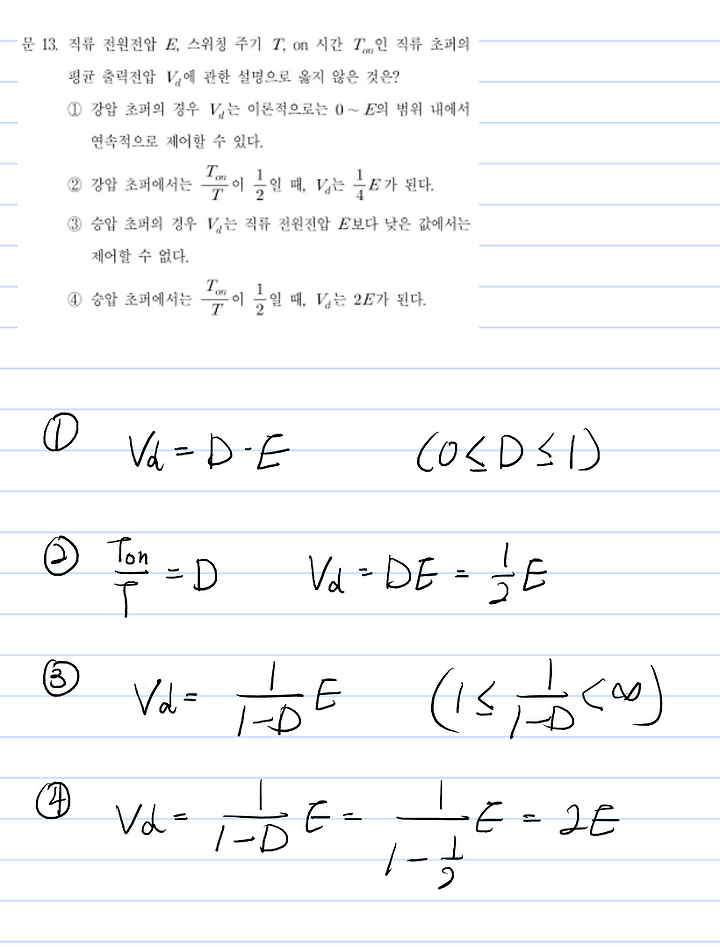 문 13. 직류 전원전압 E, 스위칭 주기 T, on 시간 T_on인 직류 초퍼의
평균 출력전압 V_d에 관한 설명으로 옳지 않은 것은?
① 강압 초퍼의 경우 V_d는 이론적으로는 0 ~ E의 범위 내에서
연속적으로 제어할 수 있다.
② 강압 초퍼에서는 T_on/T이 1/2일 때, V_d는 1/4E가 된다.
③ 승압 초퍼의 경우 V_d는 직류 전원전압 E보다 낮은 값에서는
제어할 수 없다.
④ 승압 초퍼에서는 T_on/T이 1/2일 때, V_d는 2E가 된다.
① Vd = D·E (0≤D≤1)
② Ton/T = D Vd = DE = 1/2 E
③ Vd = 1/(1-D) E (1≤ 1/(1-D) <∞)
④ Vd = 1/(1-D) E = 1/(1-1/2) E = 2E